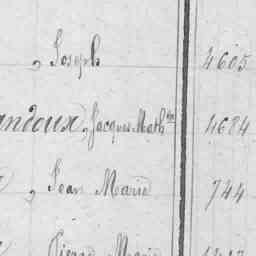 , Joseph 4605
andoux, Jacques Math 4684
, Jean Marie 744
Pierre Marie